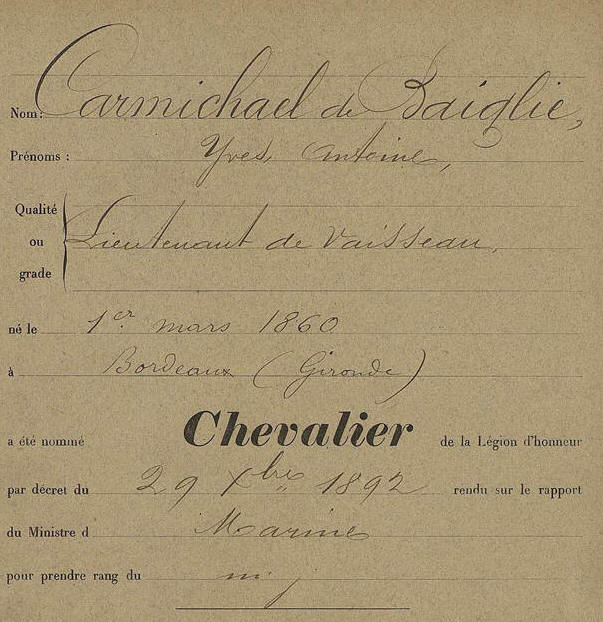 Nom: Carmichael de Baiglie,
Prénoms: Yves, Antoine,
Qualité
ou Lieutenant de Vaisseau.
grade
né le 1er mars 1860
à Bordeaux (Gironde)
a été nommé Chevalier de la Légion d'honneur
par décret du 29 Xbre 1892 rendu sur le rapport
du Ministre d Marine
pour prendre rang du m. j